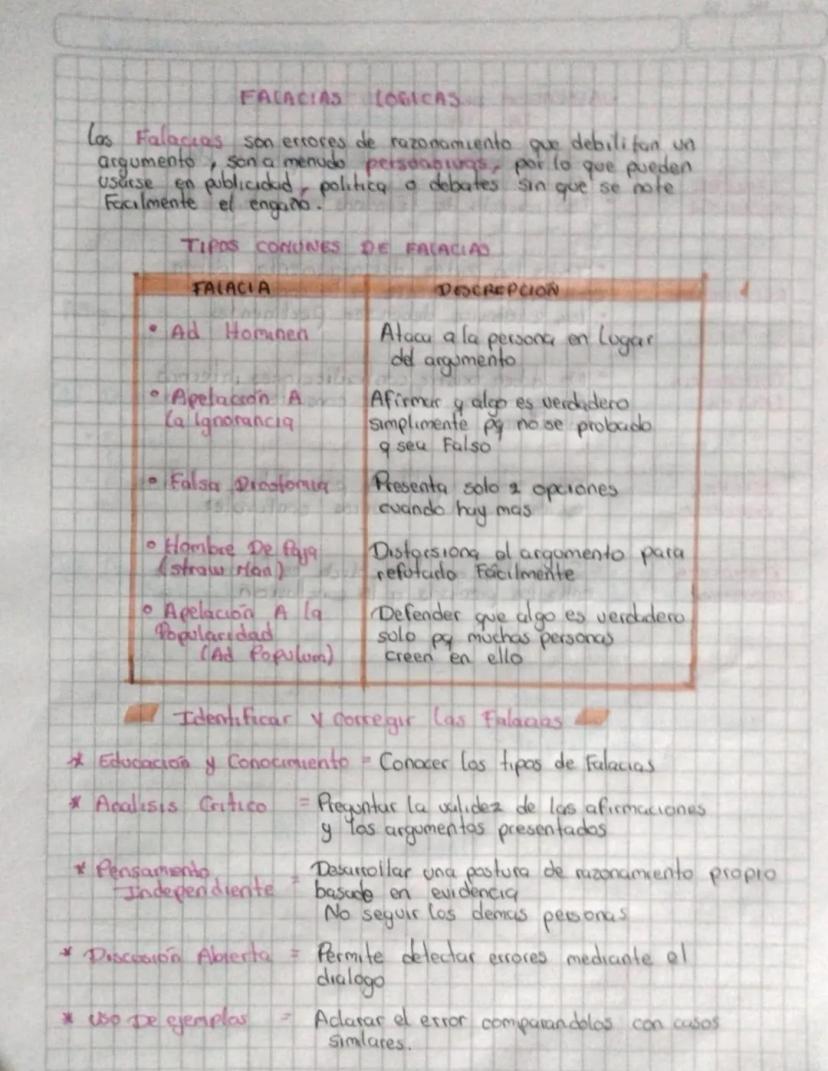 FALACIAS LOGICAS
Las Falacias son errores de razonamiento que debilitan un
argumento, son a menudo persuasivas, por lo que pueden
usarse en publicidad, politica o debates sin que se note
Facilmente el engaño.
TIPOS COMUNES DE FALACIAS
FALACIA DESCREPCION
• Ad Hominen Ataca a la persona en Lugar
del argumento
• Apelación A Afirmar q algo es verdadero
la Ignorancia simplimente pq no se probado
q sea Falso
• Falsa Dicotomia Presenta solo 2 opciones
cuando hay mas
• Hombre De Paja Distorsiona el argumento para
(straw Man) refutado Facilmente
• Apelación A la Defender que algo es verdadero
Popularidad solo pq muchas personas
(Ad Populum) creen en ello
Identificar y corregir las Falacias
* Educación y Conocimiento = Conocer los tipos de Falacias
* Analisis Critico = Preguntar la validez de las afirmaciones
y los argumentos presentados
* Pensamento Desarrollar una postura de razonamiento propio
Independiente = basade en evidencia
No seguir los demas personas
* Discusión Abierta = Permite detectar errores mediante el
dialogo
* Uso De ejemplos = Aclarar el error comparandolos con casos
similares.